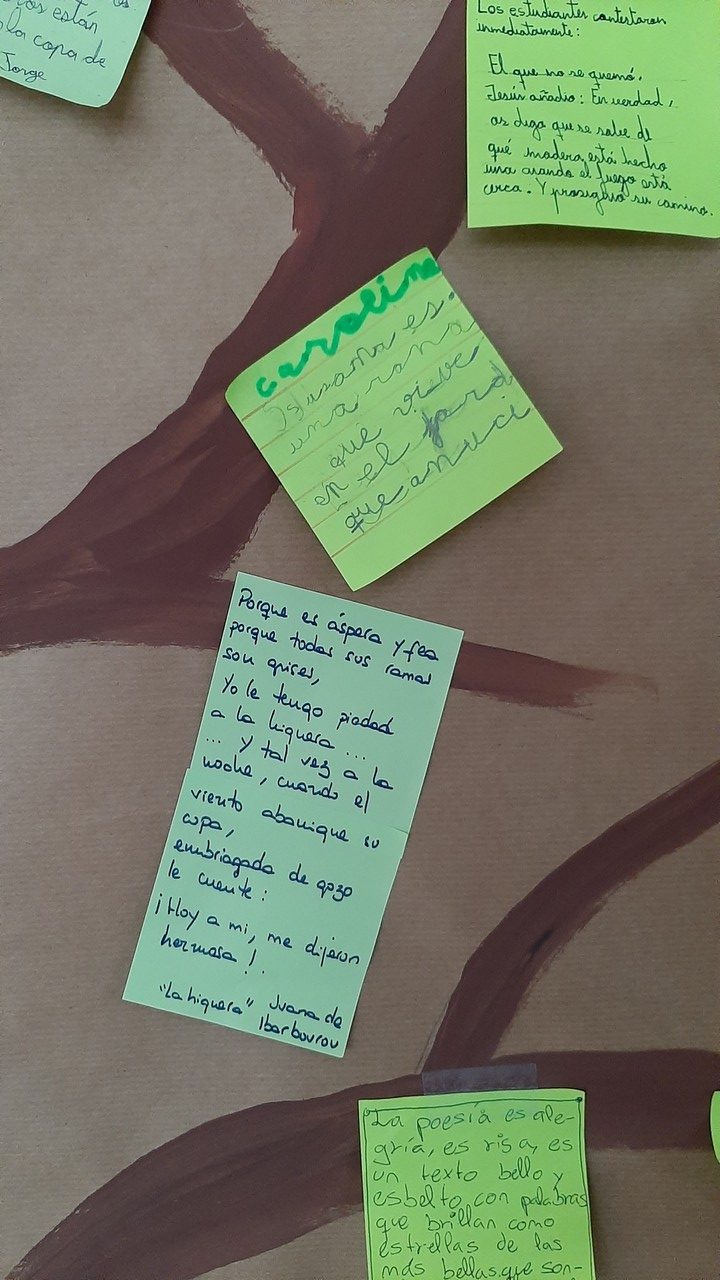 os están
la copa de
Jorge
Los estudiantes contestaron
inmediatamente:
El que no se quemó.
Jesús añadio: En verdad,
os digo que se sabe de
qué madera está hecho
uno cuando el fuego está
cerca. Y prosiguió su camino.
carolina
Susana es.
una rana
que vieve
en el jard
que anuci
Porque es áspera y fea
porque todas sus ramas
son grises,
Yo le tengo piedad
a la higuera ...
... y tal vez a la
noche, cuando el
viento abanique su
copa,
embriagada de gozo
le cuente:
¡Hoy a mi, me dijeron
hermosa!
"La higuera" Juana de
Ibarbourou
La poesía es ale-
gría, es risa, es
un texto bello y
esbelto con palabras
que brillan como
estrellas de las
más bellas que son-